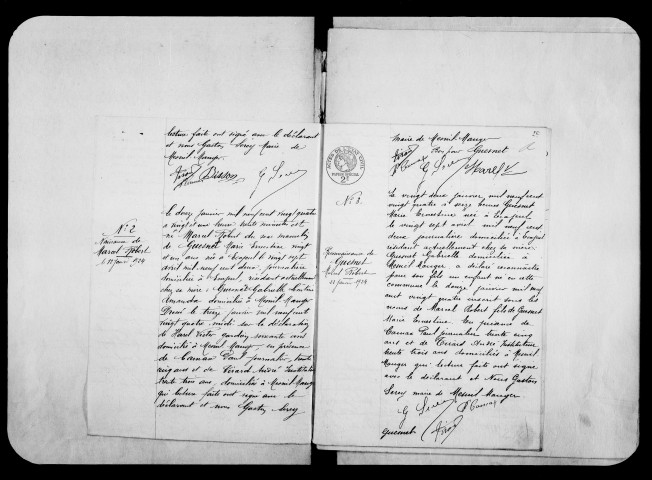 lecture faite ont signé avec le déclarant
et nous Gaston Sorey Maire de
Mesnil Mauger.
N° 2
Naissance de
Marcel Robert
le 12 Janvier 1924
Le douze janvier mil neuf cent vingt quatre
à vingt et une heures trente minutes est
né Marcel Robert du sexe masculin
de Quesnet Marie Ernestine vingt
et un ans née à le vingt sept
avril mil neuf cent deux journalière
domiciliée à résidant actuellement
chez sa mère Quesnet Gabrielle
Amanda domiciliée à Mesnil Mauger
Dressé le treize janvier mil neuf cent
vingt quatre, midi sur la déclaration
de Victor soixante ans
domicilié à Mesnil Mauger, en présence
de Paul journalier, trente
cinq ans et de André Instituteur
trente trois ans, domiciliés à Mesnil Mauger
qui lecture faite ont signé avec le
déclarant et nous Gaston Sorey
maire de Mesnil Mauger
Quesnet
ACTES DE L'ETAT CIVIL
N° 3
Reconnaissance de
Quesnet
Marcel Robert
22 janvier 1924
Le vingt deux janvier mil neuf cent
vingt quatre à seize heures Quesnet
Marie Ernestine née à
le vingt sept avril mil neuf cent
deux journalière domiciliée à
résidant actuellement chez sa mère
Quesnet Gabrielle domiciliée à
Mesnil Mauger a déclaré reconnaître
pour son fils un enfant né en cette
commune le douze janvier mil neuf
cent vingt quatre inscrit sous les
noms de Marcel Robert fils de Quesnet
Marie Ernestine. En présence de
Paul journalier trente cinq
ans et de André Instituteur
trente trois ans domiciliés à Mesnil
Mauger qui lecture faite ont signé
avec le déclarant et Nous Gaston
Sorey maire de Mesnil Mauger
Quesnet